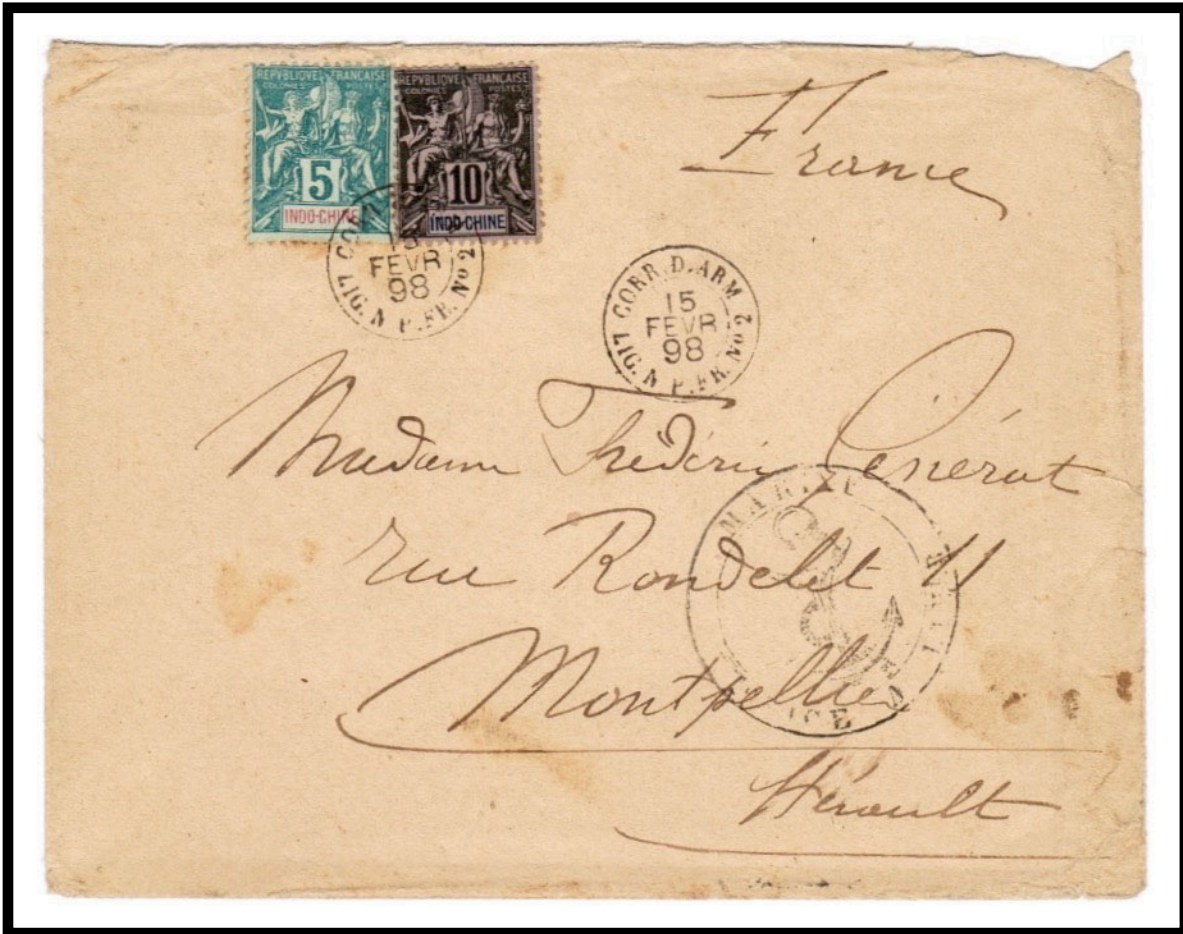 REPVBLIQVE FRANÇAISE
COLONIES POSTES
5
INDO-CHINE
REPVBLIQVE FRANÇAISE
COLONIES POSTES
10
INDO-CHINE
France
15
FEVR
98
LIG. N P. FR. No 2
CORR. D. ARM
15
FEVR
98
LIG. N P. FR. No 2
Madame
rue Rondelet 11
Montpellier
Hérault
MARINE